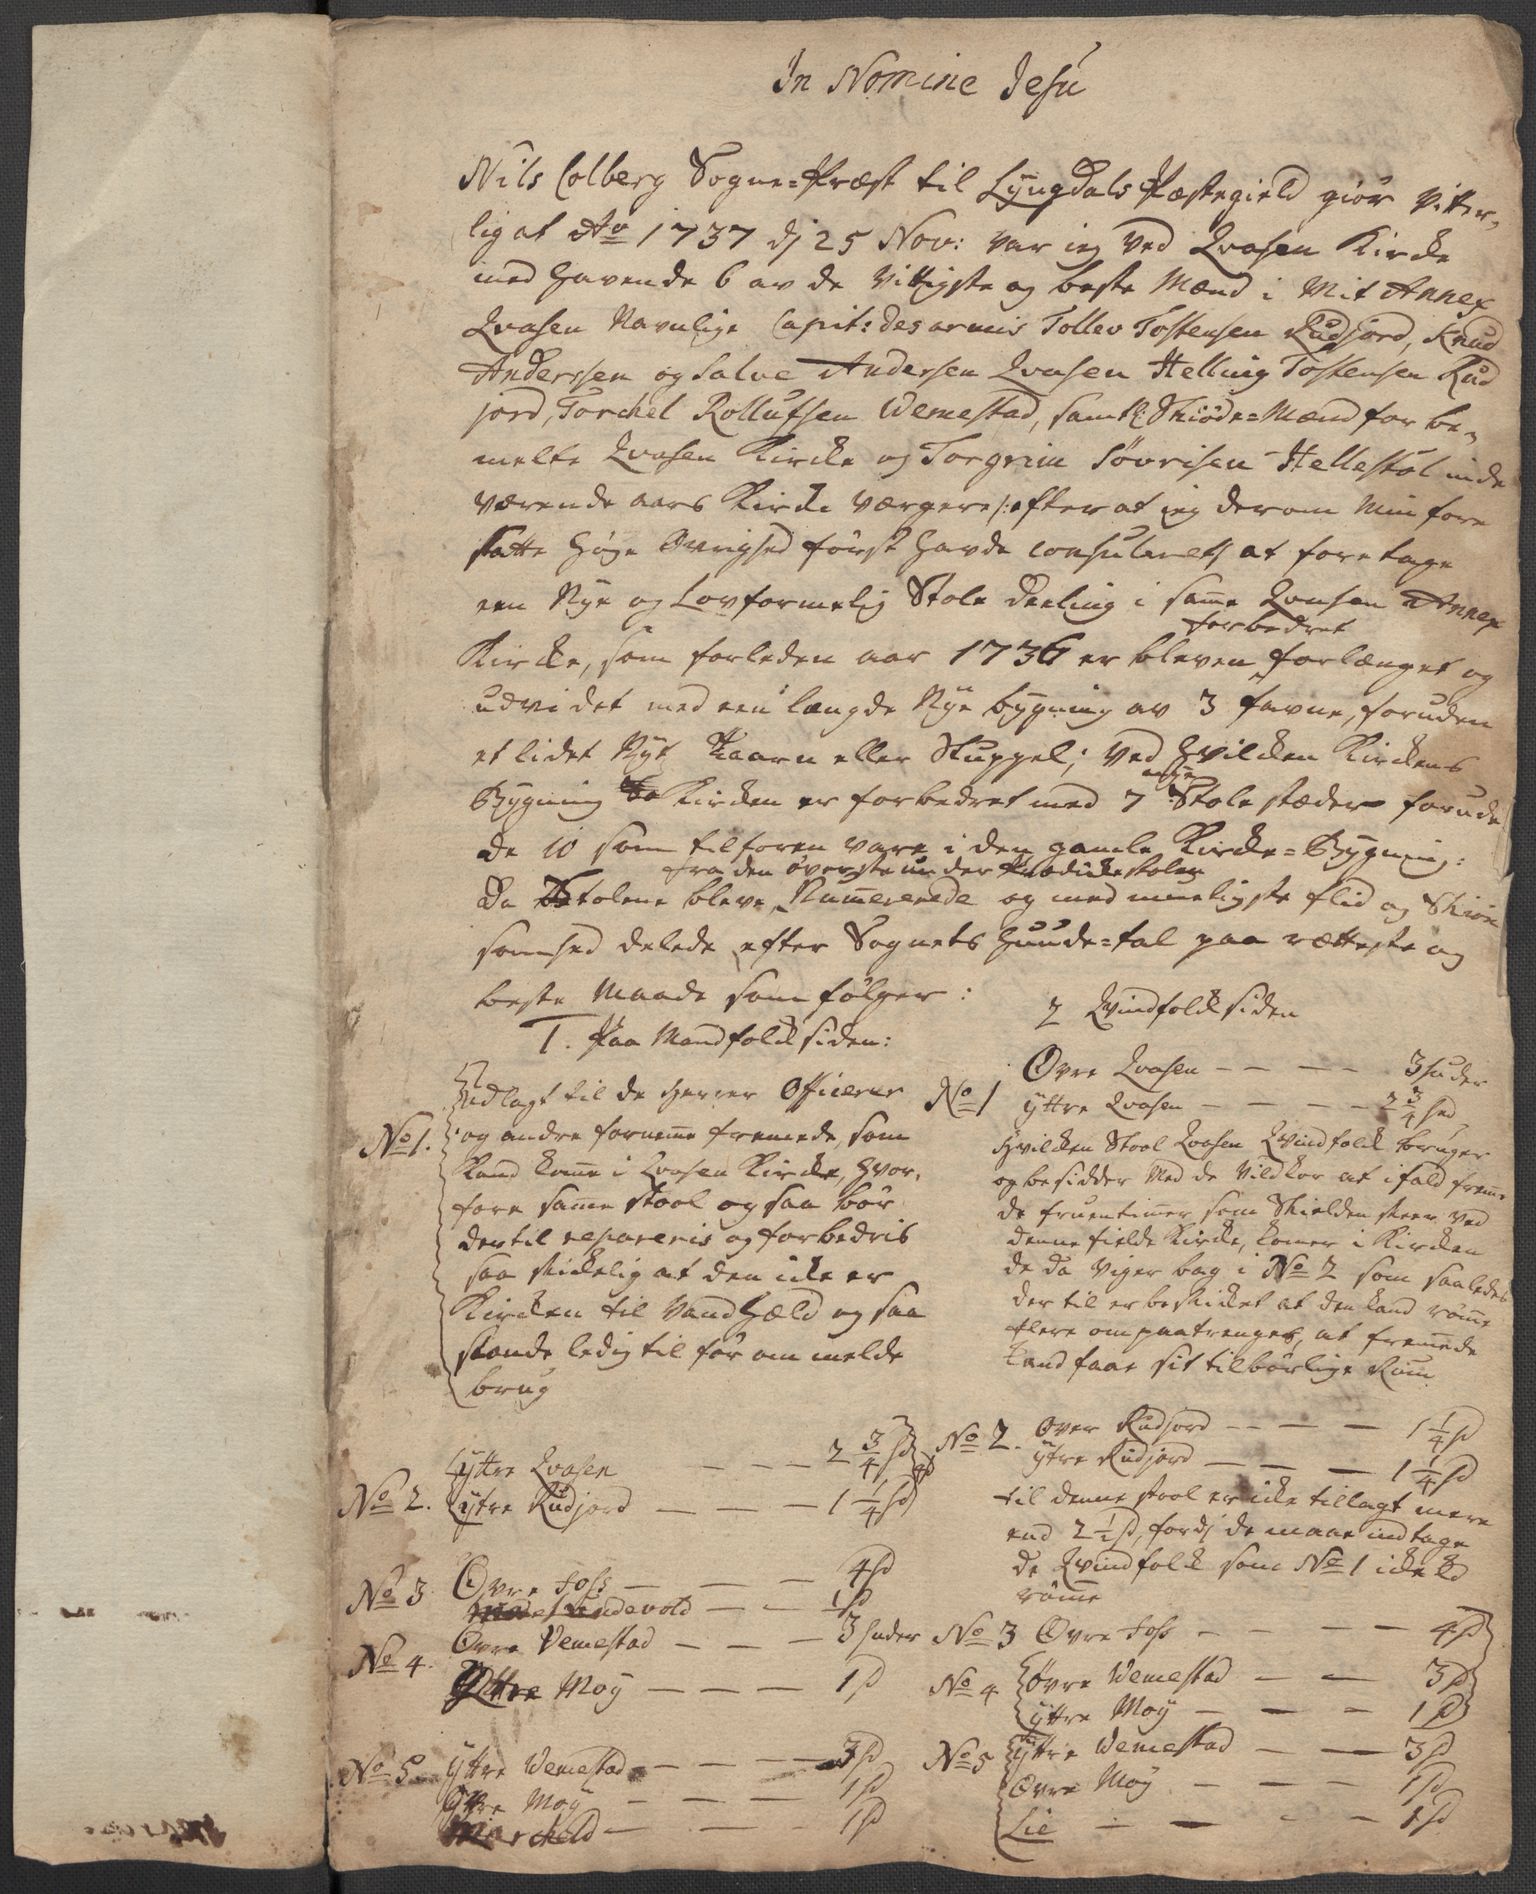 In Nomine Jesu
Nils Colberg Sogne=Præst til Lyngdals Præstegield giör Vitter,
lig at Ao 1737 dj 25 Nov: var jeg ved Qvasen Kirke
med havende 6 av de Vittigste og beste Mænd i Mit Annex
Qvasen Navnlige Capit: des armis Tollev Tostensen Rudjord, Knud
Anderssen og Salve Andersen Qvasen Helling Tostensen Rud
jord, Torckel Rollufsen Vemestad, samtl: Skiöde=Mænd for be=
melte Qvasen Kircke og Torgrim Sövrisen Hellestöl inde
værende aars Kircke værgere /: efter at jeg derom Min fore
satte höye Övrighed först havde consuleret/ at foretage
een Nye og Lovformelig Stole deeling i samme Qvasen Annex
forbedret
Kircke, som forleden aar 1736 er bleven forlænget og
udvidet med een længde Nye bygning av 3 favne, foruden
et lidet Nyt Taarn eller Stuppel; ved hvilcken Kirckens
nye
Bygning Kircken er forbedret med 7 Stole stæder forude
de 10 som tilforen vare i den gamle Kircke=Bygning:
fra den överste under Prædickestolen
Da Stolene bleve Nummererede og med mueligste flid og Skiön
somhed deelede efter Sognets huude=tal paa rætteste og
beste Maade som fölger:
1. Paa Mandfolck siden:
No 1.
Udlagt til de Herrer Officerer
og andre fornemme fremede, som
kand komme i Qvasen Kircke, hvor,
fore samme stool og saa bör
dertil repareris og forbedris
saa skickelig at den icke er
Kircken til Vandhæld og saa
stande ledig til för om melde
brug
No 2.
Yttre Qvasen — — — 2 3/4 hd
Yttre Rudjord — — — 1 1/4 hd
No 3 Övre Foss — — — 4 hd
Sandevold — — 1 hd
No 4. Övre Vemestad — — — 3 huder
Yttre Moy — — — 1 hd
No 5 Yttre Vemestad — — — 3 hd
Yttre Moy — — — 1 hd
Marckeld — — — 1 hd
2 Qvindfolck siden
No 1
Övre Qvasen — — — — 3 huder
Yttre Qvasen — — — — 2 3/4 hd
Hvilcken Stool Qvasen Qvindfolck bruger
og besidder Med de Vilckor at ifald fremme
de fruentimmer som Skielden skeer ved
denne fielde Kircke, komer i Kircken
de da viger bag i No 2 som saaledes
der til er beskicket at den kand römme
flere om paatrenges, at fremmede
kand faae sit tilbörlige Rum
No 2. Över Rudjord — — — 1 1/4 hd
Yttre Rudjord — — — 1 1/4 hd
til denne stool er icke tillagt mere
end 2 1/2 hd, fordj de maae indtage
de Qvindfolck som No 1 icke kd
römme
No 3 Övre Foss — — — — 4 hd
No 4 Övre Vemestad — — 3 hd
Yttre Moy — — — 1 hd
No 5 Yttre Vemestad — — 3 hd
Övre Moy — — — 1 hd
Lie — — — — 1 hd